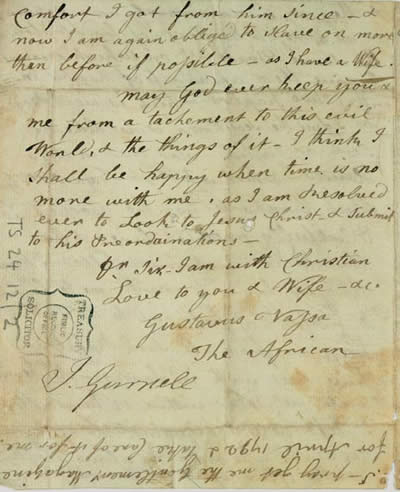 Comfort I got from him since — &
now I am again obliged to slave on more
than before if possible — as I have a Wife.
may God ever keep you &
me from a tachement to this evil
World, & the things of it — I think I
Shall be happy when time is no
more with me, as I am Resolved
ever to Look to Jesus Christ & Submit
to his Preordainations —
Dr Sir — I am with Christian
Love to you & Wife — &c.
Gustavus Vassa
The African
TS 24/12/2
TREASURY
SOLICITOR
PUBLIC
RECORD
OFFICE
pray get me the Gentlemen's Magazine
for April 1792 & take Care of it for me.